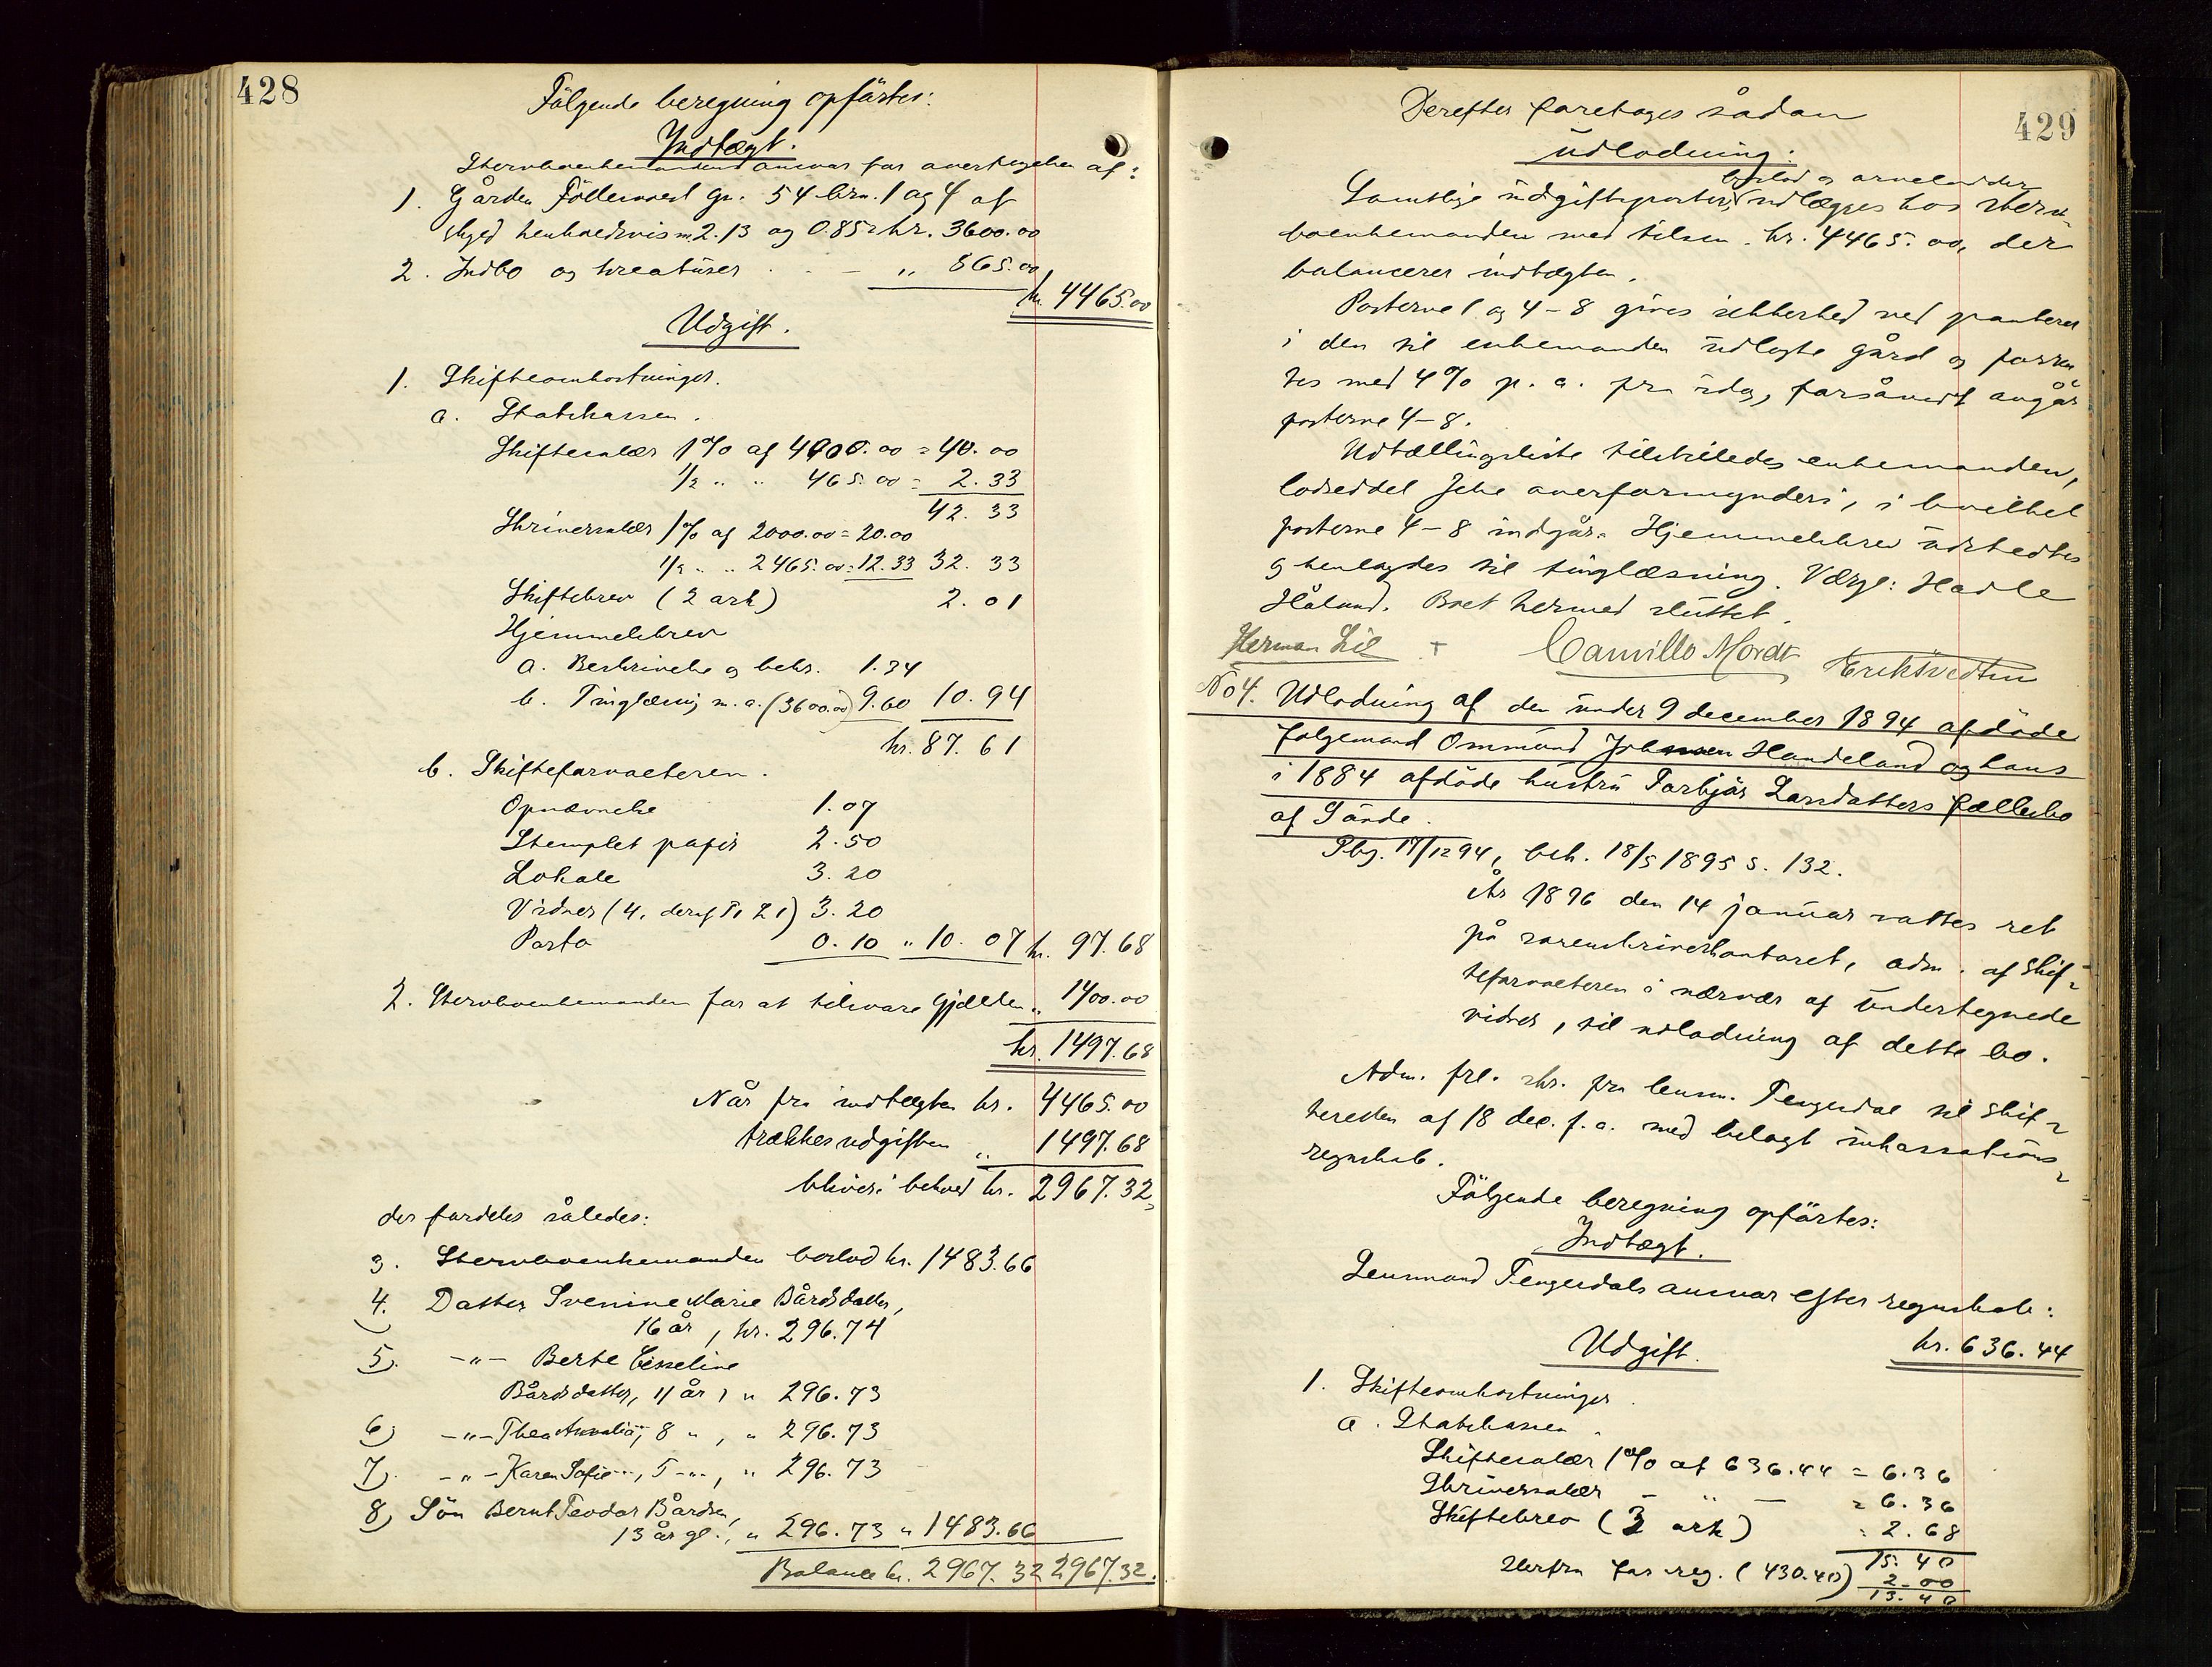 428
Følgende beregning opførtes:
Indtægt.
Stervboenkemandens ansvar for overtagelsen af:
1. Gården Föllesvest gr. 54 brn. 1 og 4 af
skyld henholdsvis m. 2.13 og 0.85 = kr. 3600.00
2. Indbo og kreatürer - „ 865.00
kr. 4465.00
Udgift.
1. Skifteomkostninger.
a. Statskassen.
Skiftesalær 1% af 4000.00 = 40.00
1/2 „ „ 465.00 = 2.33
42.33
Skriversalær 1% af 2000.00 = 20.00
1/2 „ „ 2465.00 = 12.33 32.33
Skiftebrev (2 ark) 2.01
Hjemmelsbrev
a. Beskrivelse og bekr. 1.34
b. Tinglæsning m. a. (3600.00) 9.60 10.94
kr. 87.61
b. Skifteforvalteren.
Opnævnelse 1.07
Stemplet papir 2.50
Lokale 3.20
Vidner (4, deraf 3.20
Porto 0.10 „ 10.07 kr. 97.68
2. Stervboenkemanden for at tilsvare gjælden „ 1400.00
kr. 1497.68
Når fra indtægten kr. 4465.00
trækkes udgiften „ 1497.68
blives i behold kr. 2967.32,
der fordeles således:
3. Stervboenkemanden boslod kr. 1483.66
4. Datter Svenine Marie Bårdsdatter,
16 år, kr. 296.74
5). -„- Berte Gisseline
Bårdsdatter, 11 år, „ 296.73
6) -„- Thea Amalia -„-, 8 „, „ 296.73
7). -„- Karen Sofie -„-, 5 -„-, „ 296.73
8) Sön Bernt Teodor Bårdsen,
13 år gl., „ 296.73 „ 1483.66
Balance kr. 2967.32 2967.32.
429
Derefter foretages sådan
üdlodning:
boslod og arvelodder
Samtlige üdgiftsposter, üdlægges hos sterv-
boenkemanden med tilsm. kr. 4465.00, der
balancerer indtægten.
Posterne 1 og 4-8 gives sikkerhed ved panteret
i den til enkemanden üdlagte gård og forren
tes med 4% p. a. fra idag, forsåvidt angår
posterne 4-8.
Udtællingsliste tilstilledes enkemanden,
lodseddel overformynderi, i hvilket
posterne 4-8 indgår. Hjemmelsbrev üdstedtes
og henlagdes til tinglæsning. Værge: Hadle
Håland. Boet hermed slüttet.
Herman Lie + Camillo Mordt Erik Svedtun
No 4. Udlodning af den ünder 9 december 1894 afdöde
folgemand Ommünd Johnsen Handeland og hans
i 1884 afdöde hüstrü Torbjör Larsdatters fællesbo
af Sände.
Pbg. 17/12 94, beh. 18/5 1895 s. 132.
År 1896 den 14 janüar sattes ret
på sorenskriverkontoret, adm. af skif-
teforvalteren i nærvær af ündertegnede
vidner, til üdlodning af dette bo.
Adm. frl. skr. fra lensm. Tengesdal til skif-
teretten af 18 dec. f. a. med bilagt inkassations-
regnskab.
Følgende beregning opførtes:
Indtægt.
Lensmand Tengesdals ansvar efter regnskab:
kr. 636.44
Udgift.
1. Skifteomkostninger.
a. Statskassen.
Skiftesalær 1% af 636.44 = 6.36
Skriversalær - „ - = 6.36
Skiftebrev (3 ark) = 2.68
15.40
Herfra for reg. (430.40) 2.00
13.40